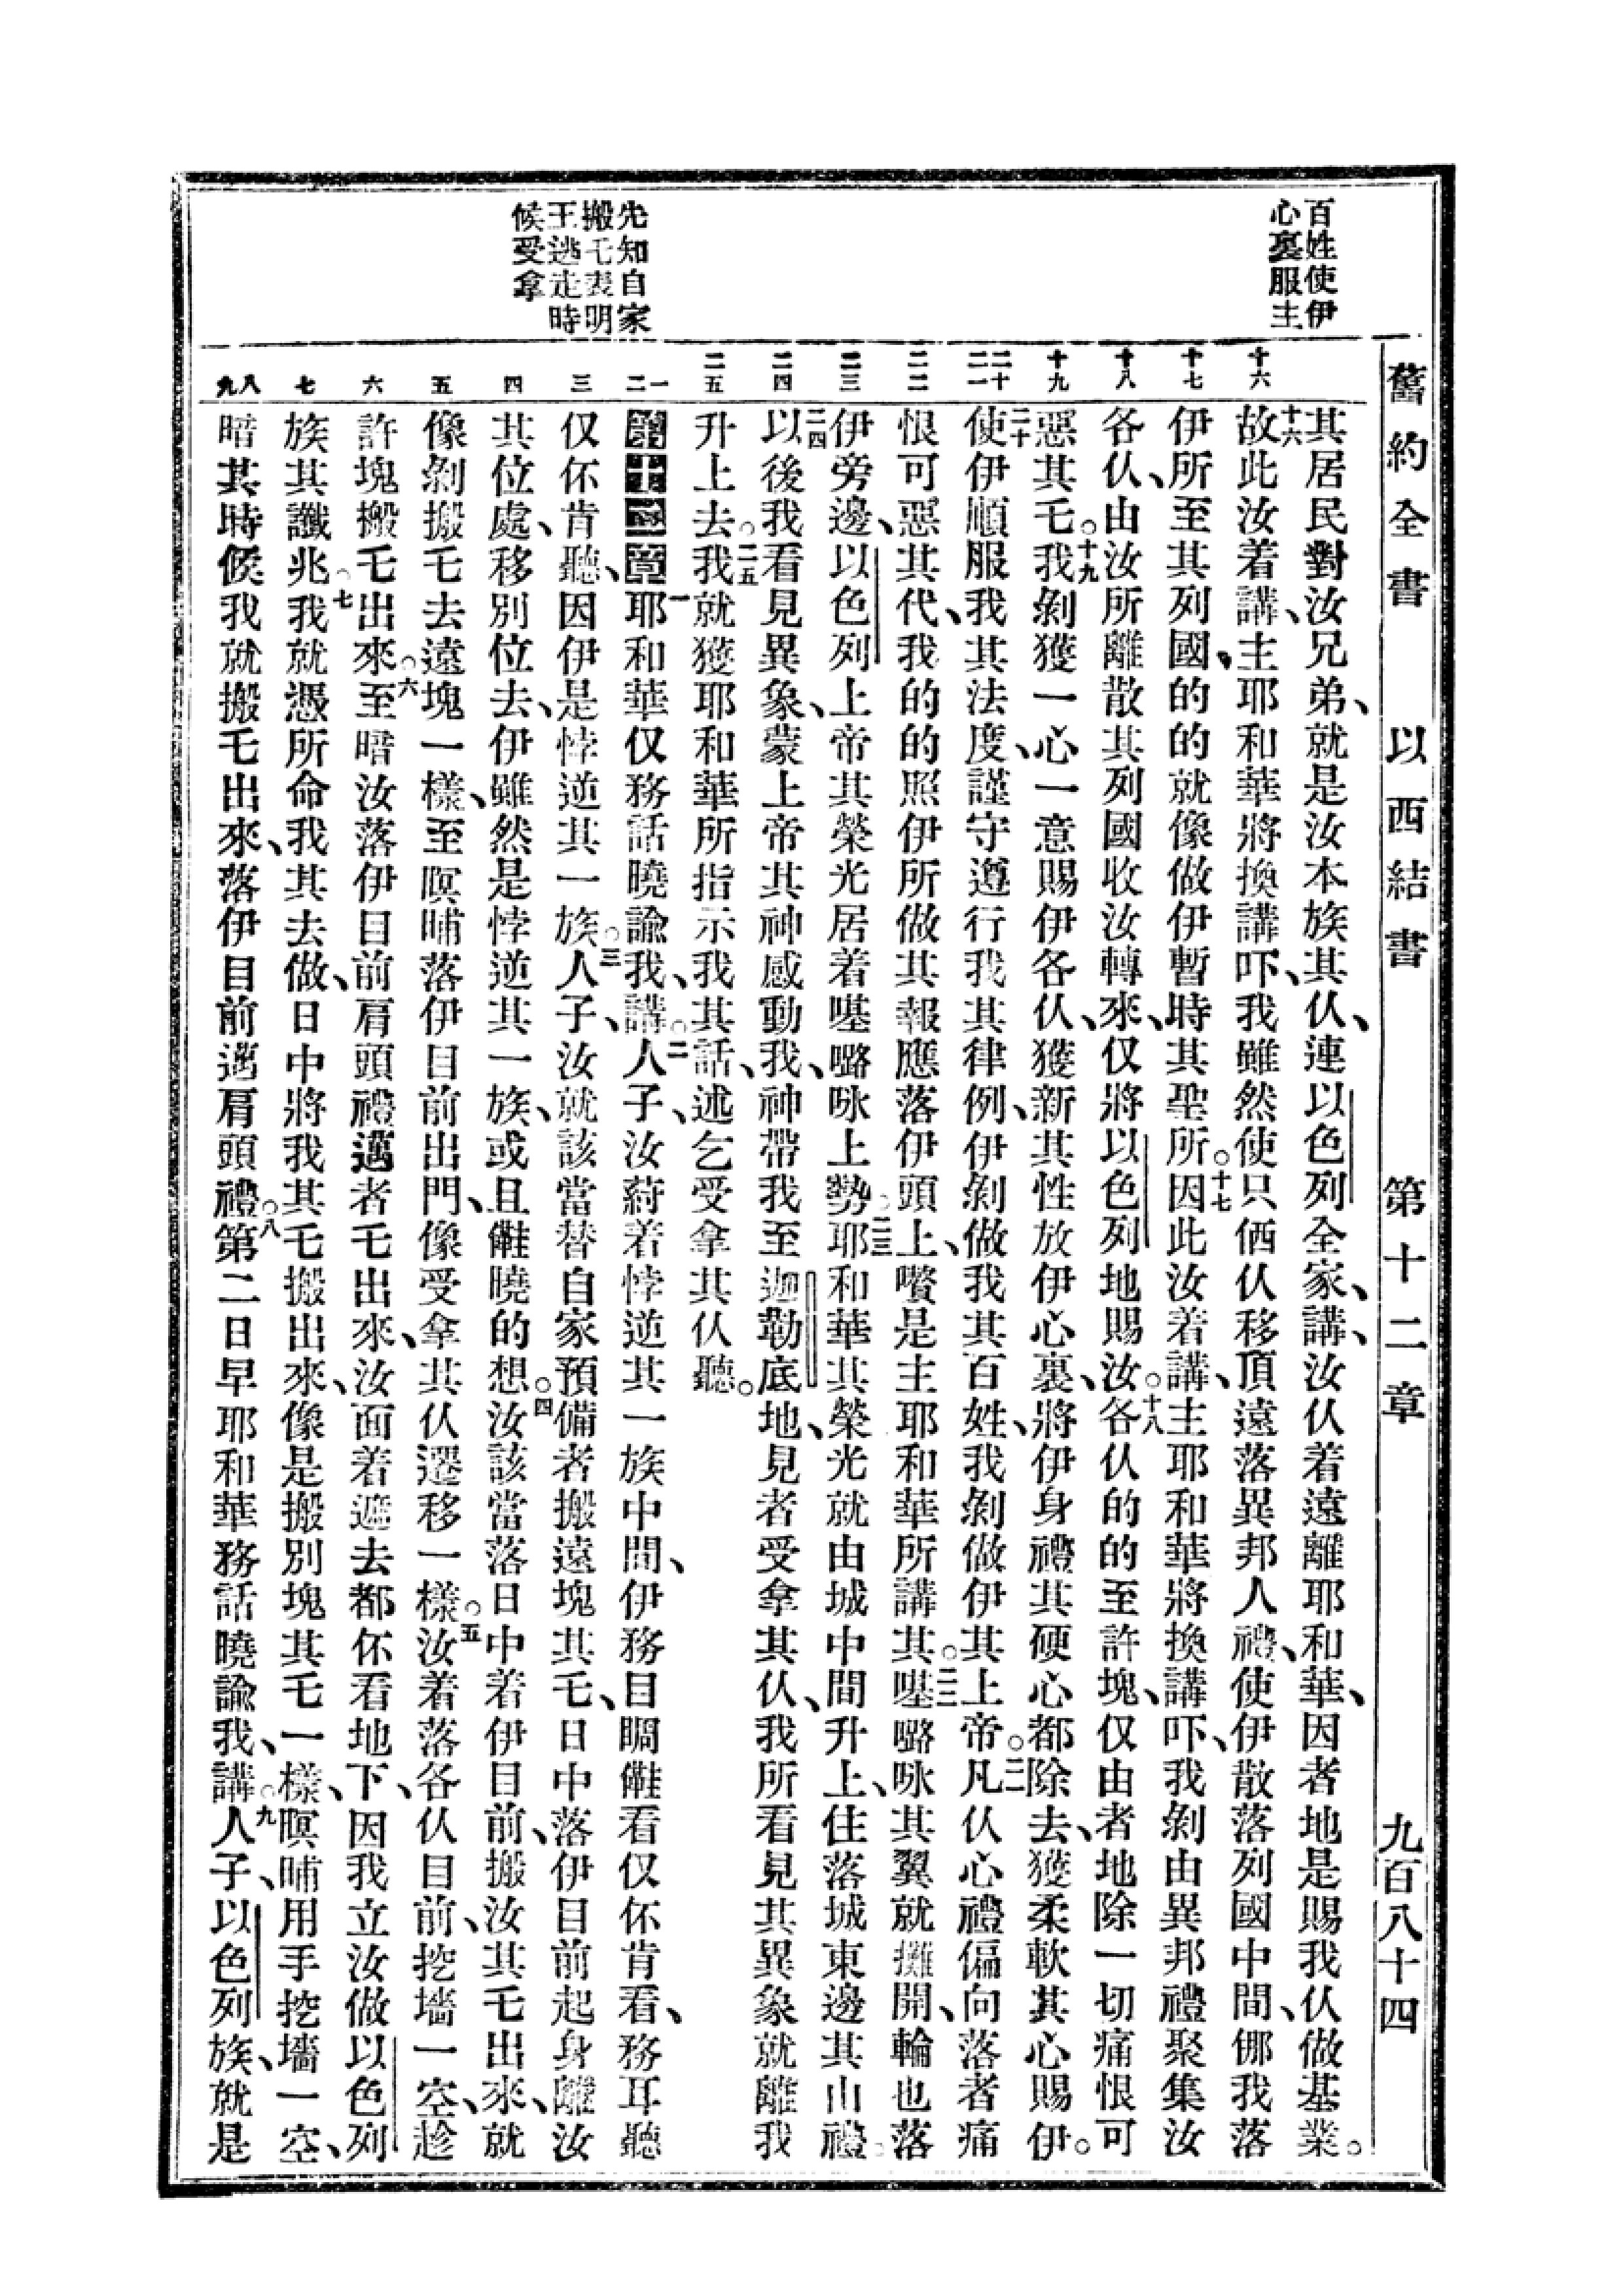 舊約全書　以西結書　第十二章　九百八十四
百姓使伊
心裏服主
先知自家
搬乇表明
王逃走時
候受拿
十六
十七
十八
十九
二十
二一
二二
二三
二四
二五
一
二
三
四
五
六
七
八
九
其居民對汝兄弟、就是汝本族其仈、連以色列全家、講、汝仈着遠離耶和華、因者地是賜我仈做基業。
十六故此汝着講、主耶和華將換講吓、我雖然使只価仈移頂遠落異邦人禮、使伊散落列國中間、㑚我落
伊所至其列國、的的就像做伊暫時其聖所。十七因此汝着講、主耶和華將換講吓、我剝由異邦禮聚集汝
各仈、由汝所離散其列國收汝轉來、仅將以色列地賜汝。十八各仈的的至許塊、仅由者地除一切痛恨可
惡其乇。十九我剝獲一心一意賜伊各仈、獲新其性放伊心裏、將伊身禮其硬心都除去、獲柔軟其心賜伊。
二十使伊順服我其法度、謹守遵行我其律例、伊剝做我其百姓、我剝做伊其上帝。二一凡仈心禮偏向落者痛
恨可惡其代、我的的照伊所做其報應落伊頭上、嚽是主耶和華所講其。二二𠹌嚧㕸其翼就攤開、輪也落
伊旁邊、以色列上帝其榮光居着𠹌嚧㕸上勢。二三耶和華其榮光就由城中間升上、住落城東邊其山禮。
二四以後我看見異象、蒙上帝其神感動我、神帶我至迦勒底地、見者受拿其仈、我所看見其異象就離我
升上去。二五我就獲耶和華所指示我其話、述乞受拿其仈聽。
第十二章一耶和華仅務話曉諭我、講。二人子、汝蒔着悖逆其一族中間、伊務目睭㑸看仅伓肯看、務耳聽
仅伓肯聽、因伊是悖逆其一族。三人子、汝就該當替自家預備者搬遠塊其乇、日中落伊目前起身離汝
其位處、移別位去、伊雖然是悖逆其一族、或且㑸曉的想。四汝該當落日中着伊目前、搬汝其乇出來、就
像剝搬乇去遠塊一樣、至暝晡落伊目前出門、像受拿其仈遷移一樣。五汝着落各仈目前、挖墻一空、趁
許塊搬乇出來。六至暗汝落伊目前肩頭禮邁者乇出來、汝面着遮去都伓看地下、因我立汝做以色列
族其讖兆。七我就憑所命我其去做、日中將我其乇搬出來、像是搬別塊其乇一樣、暝晡用手挖墻一空、
暗其時候我就搬乇出來、落伊目前邁肩頭禮。八第二日早耶和華務話曉諭我、講。九人子、以色列族、就是